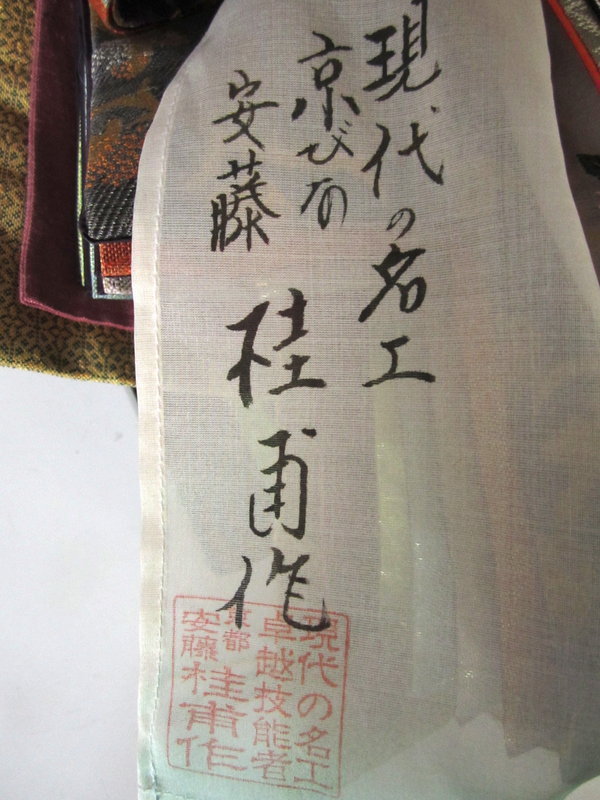 現代の名工
京びな
安藤桂甫作
現代の名工
卓越技能者
京都
安藤桂甫作